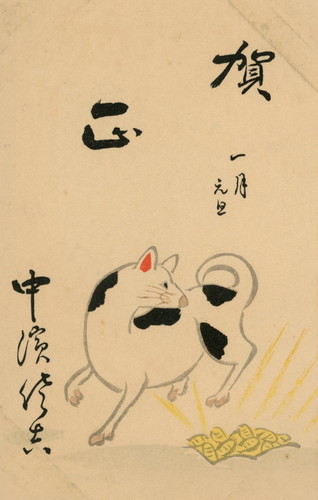 賀
正
一月
元旦
中濱
吉